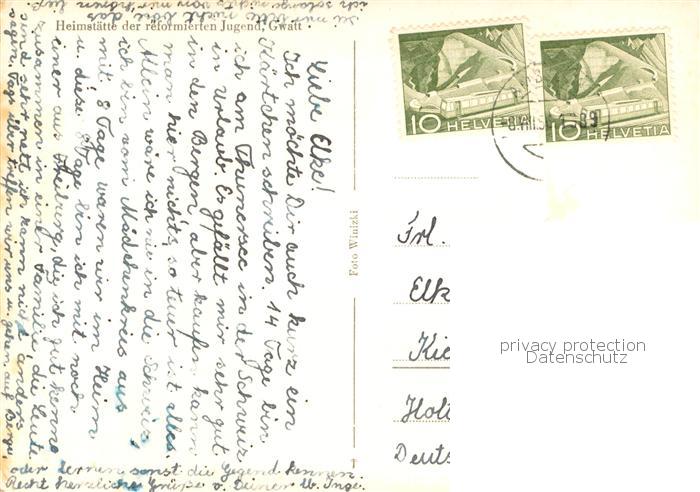 Heimstätte der reformierten Jugend, Gwatt
Liebe Elke!
Ich möchte Dir auch kurz ein
Kärtchen schreiben. 14 Tage bin
ich am Thunersee in der Schweiz
in Urlaub. Es gefällt mir sehr gut
in den Bergen, aber kaufen kann
man hier nichts, so teuer ist alles.
Allein wäre ich nie in die Schweiz,
ich bin vom Mädchenkreis aus
mit. 8 Tage waren wir im Heim
u. diese 8 Tage bin ich mit noch
einer aus Freiburg, die ich gut kenne
zusammen in einer Familie, die Leute
sind sehr nett, ich kann nicht anders
sagen. Tags über treffen wir uns u. gehen auf Berge
oder lernen sonst die Gegend kennen.
Recht herzliche Grüße v. Deiner lb. Inge.
Foto Winizki
10 HELVETIA
10 HELVETIA
Frl.
Elk
Kie
Holt
Deuts
privacy protection
Datenschutz